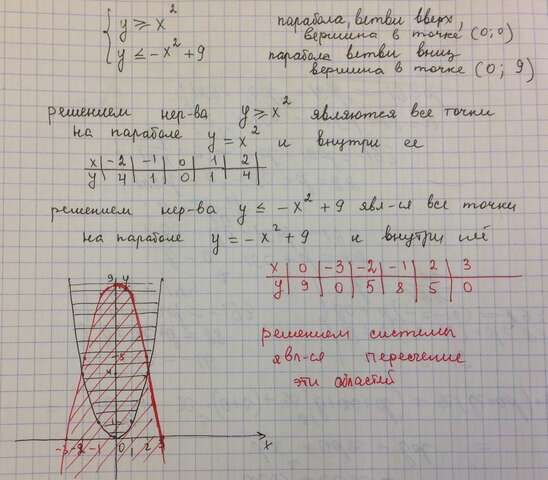 y ≥ x² парабола, ветви вверх,
вершина в точке (0;0)
y ≤ -x² + 9 парабола ветви вниз
вершина в точке (0; 9)
решением нер-ва y ≥ x² являются все точки
на параболе y = x² и внутри ее
x | -2 | -1 | 0 | 1 | 2
y | 4 | 1 | 0 | 1 | 4
решением нер-ва y ≤ -x² + 9 явл-ся все точки
на параболе y = -x² + 9 и внутри
x | 0 | -3 | -2 | -1 | 2 | 3
y | 9 | 0 | 5 | 8 | 5 | 0
решением системы
явл-ся пересечение
эти областей
9 y
4
-3 -2 -1 0 1 2 3 x